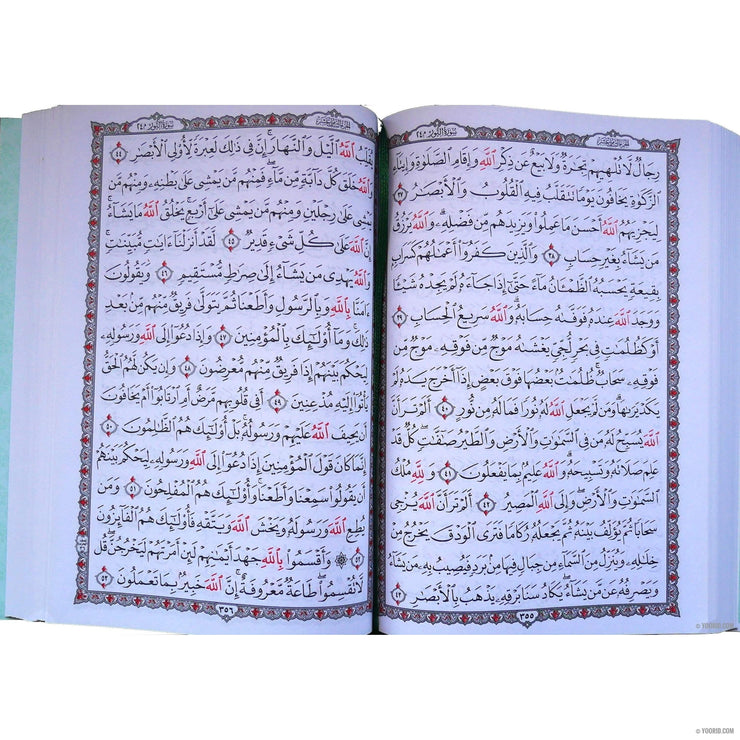 سورة النور ٢٤
الجزء الثامن عشر
رِجَالٌ لَّا تُلْهِيهِمْ تِجَٰرَةٌ وَلَا بَيْعٌ عَن ذِكْرِ ٱللَّهِ وَإِقَامِ ٱلصَّلَوٰةِ وَإِيتَآءِ
ٱلزَّكَوٰةِ يَخَافُونَ يَوْمًا تَتَقَلَّبُ فِيهِ ٱلْقُلُوبُ وَٱلْأَبْصَٰرُ ٣٧
لِيَجْزِيَهُمُ ٱللَّهُ أَحْسَنَ مَا عَمِلُوا۟ وَيَزِيدَهُم مِّن فَضْلِهِۦ ۗ وَٱللَّهُ يَرْزُقُ
مَن يَشَآءُ بِغَيْرِ حِسَابٍ ٣٨ وَٱلَّذِينَ كَفَرُوٓا۟ أَعْمَٰلُهُمْ كَسَرَابٍۭ
بِقِيعَةٍ يَحْسَبُهُ ٱلظَّمْـَٔانُ مَآءً حَتَّىٰٓ إِذَا جَآءَهُۥ لَمْ يَجِدْهُ شَيْـًٔا
وَوَجَدَ ٱللَّهَ عِندَهُۥ فَوَفَّىٰهُ حِسَابَهُۥ ۗ وَٱللَّهُ سَرِيعُ ٱلْحِسَابِ ٣٩
أَوْ كَظُلُمَٰتٍ فِى بَحْرٍ لُّجِّىٍّ يَغْشَىٰهُ مَوْجٌ مِّن فَوْقِهِۦ مَوْجٌ مِّن
فَوْقِهِۦ سَحَابٌ ۚ ظُلُمَٰتٌۢ بَعْضُهَا فَوْقَ بَعْضٍ إِذَآ أَخْرَجَ يَدَهُۥ لَمْ
يَكَدْ يَرَىٰهَا ۗ وَمَن لَّمْ يَجْعَلِ ٱللَّهُ لَهُۥ نُورًا فَمَا لَهُۥ مِن نُّورٍ ٤٠ أَلَمْ تَرَ أَنَّ
ٱللَّهَ يُسَبِّحُ لَهُۥ مَن فِى ٱلسَّمَٰوَٰتِ وَٱلْأَرْضِ وَٱلطَّيْرُ صَٰٓفَّٰتٍ ۖ كُلٌّ قَدْ
عَلِمَ صَلَاتَهُۥ وَتَسْبِيحَهُۥ ۗ وَٱللَّهُ عَلِيمٌۢ بِمَا يَفْعَلُونَ ٤١ وَلِلَّهِ مُلْكُ
ٱلسَّمَٰوَٰتِ وَٱلْأَرْضِ ۖ وَإِلَى ٱللَّهِ ٱلْمَصِيرُ ٤٢ أَلَمْ تَرَ أَنَّ ٱللَّهَ يُزْجِى
سَحَابًا ثُمَّ يُؤَلِّفُ بَيْنَهُۥ ثُمَّ يَجْعَلُهُۥ رُكَامًا فَتَرَى ٱلْوَدْقَ يَخْرُجُ مِنْ
خِلَٰلِهِۦ وَيُنَزِّلُ مِنَ ٱلسَّمَآءِ مِن جِبَالٍ فِيهَا مِنۢ بَرَدٍ فَيُصِيبُ بِهِۦ مَن يَشَآءُ
وَيَصْرِفُهُۥ عَن مَّن يَشَآءُ ۖ يَكَادُ سَنَا بَرْقِهِۦ يَذْهَبُ بِٱلْأَبْصَٰرِ ٤٣
٣٥٥
سورة النور ٢٤
الجزء الثامن عشر
يُقَلِّبُ ٱللَّهُ ٱلَّيْلَ وَٱلنَّهَارَ ۚ إِنَّ فِى ذَٰلِكَ لَعِبْرَةً لِّأُو۟لِى ٱلْأَبْصَٰرِ ٤٤
وَٱللَّهُ خَلَقَ كُلَّ دَآبَّةٍ مِّن مَّآءٍ ۖ فَمِنْهُم مَّن يَمْشِى عَلَىٰ بَطْنِهِۦ وَمِنْهُم مَّن
يَمْشِى عَلَىٰ رِجْلَيْنِ وَمِنْهُم مَّن يَمْشِى عَلَىٰٓ أَرْبَعٍ ۚ يَخْلُقُ ٱللَّهُ مَا يَشَآءُ ۚ
إِنَّ ٱللَّهَ عَلَىٰ كُلِّ شَىْءٍ قَدِيرٌ ٤٥ لَّقَدْ أَنزَلْنَآ ءَايَٰتٍ مُّبَيِّنَٰتٍ ۚ
وَٱللَّهُ يَهْدِى مَن يَشَآءُ إِلَىٰ صِرَٰطٍ مُّسْتَقِيمٍ ٤٦ وَيَقُولُونَ
ءَامَنَّا بِٱللَّهِ وَبِٱلرَّسُولِ وَأَطَعْنَا ثُمَّ يَتَوَلَّىٰ فَرِيقٌ مِّنْهُم مِّنۢ بَعْدِ
ذَٰلِكَ ۚ وَمَآ أُو۟لَٰٓئِكَ بِٱلْمُؤْمِنِينَ ٤٧ وَإِذَا دُعُوٓا۟ إِلَى ٱللَّهِ وَرَسُولِهِۦ
لِيَحْكُمَ بَيْنَهُمْ إِذَا فَرِيقٌ مِّنْهُم مُّعْرِضُونَ ٤٨ وَإِن يَكُن لَّهُمُ ٱلْحَقُّ
يَأْتُوٓا۟ إِلَيْهِ مُذْعِنِينَ ٤٩ أَفِى قُلُوبِهِم مَّرَضٌ أَمِ ٱرْتَابُوٓا۟ أَمْ يَخَافُونَ
أَن يَحِيفَ ٱللَّهُ عَلَيْهِمْ وَرَسُولُهُۥ ۚ بَلْ أُو۟لَٰٓئِكَ هُمُ ٱلظَّٰلِمُونَ ٥٠
إِنَّمَا كَانَ قَوْلَ ٱلْمُؤْمِنِينَ إِذَا دُعُوٓا۟ إِلَى ٱللَّهِ وَرَسُولِهِۦ لِيَحْكُمَ بَيْنَهُمْ
أَن يَقُولُوا۟ سَمِعْنَا وَأَطَعْنَا ۚ وَأُو۟لَٰٓئِكَ هُمُ ٱلْمُفْلِحُونَ ٥١ وَمَن
يُطِعِ ٱللَّهَ وَرَسُولَهُۥ وَيَخْشَ ٱللَّهَ وَيَتَّقْهِ فَأُو۟لَٰٓئِكَ هُمُ ٱلْفَآئِزُونَ
٥٢ ۞ وَأَقْسَمُوا۟ بِٱللَّهِ جَهْدَ أَيْمَٰنِهِمْ لَئِنْ أَمَرْتَهُمْ لَيَخْرُجُنَّ ۖ قُل
لَّا تُقْسِمُوا۟ ۖ طَاعَةٌ مَّعْرُوفَةٌ ۚ إِنَّ ٱللَّهَ خَبِيرٌۢ بِمَا تَعْمَلُونَ ٥٣
٣٥٦
© YOORID.COM